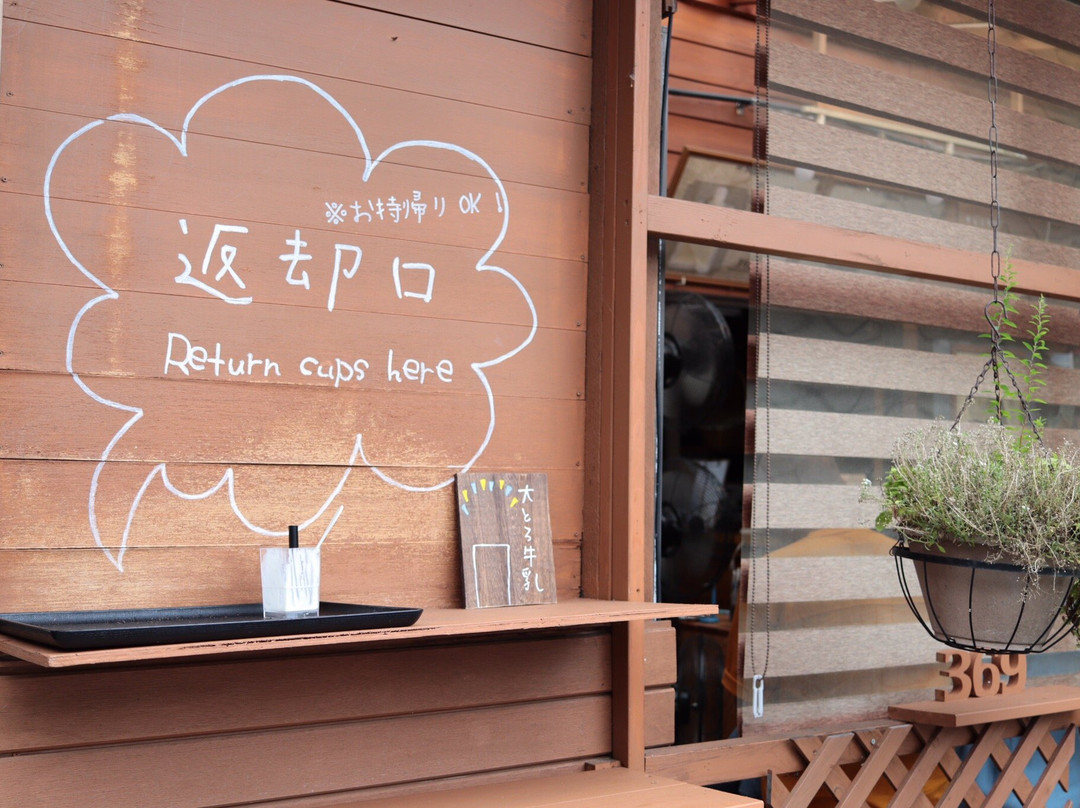 ※お持帰り OK!
返却口
Return cups here
大とろ牛乳
369